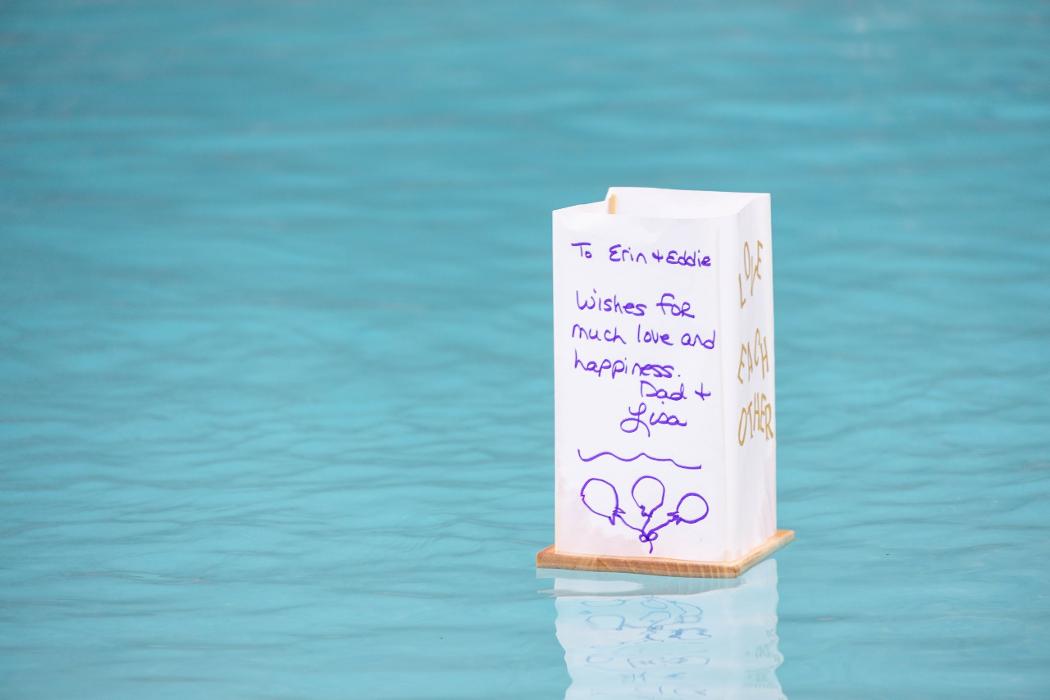 To Erin + Eddie
Wishes for
much love and
happiness.
Dad +
Lisa
LOVE
EACH
OTHER